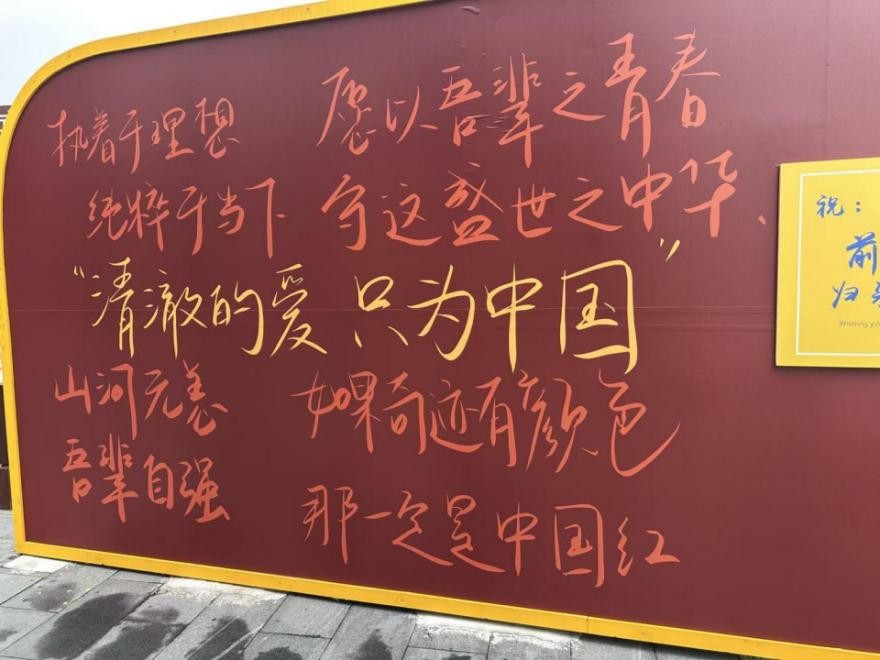 执着于理想
纯粹于当下
愿以吾辈之青春
守这盛世之中华、
“清澈的爱 只为中国”
山河无恙
吾辈自强
如果奇迹有颜色
那一定是中国红
祝：
前
归
Wishing